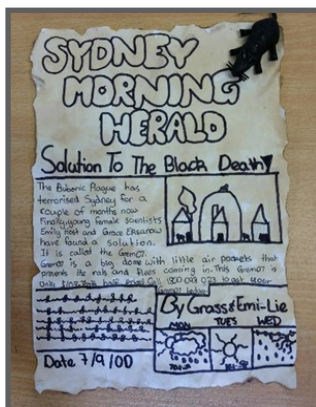 SYDNEY
MORNING
HERALD
Solution To The Black Death
The Bubonic Plague has
terrorised Sydney for a
couple of months now
Finally, young female scientists
Emily Host and Grace
have found a solution.
It is called the
is a big dome with little air pockets that
prevents the rats and flees coming in. This
only
By Grass & Emi-Lie
MON TUES WED
Date 7/9/00